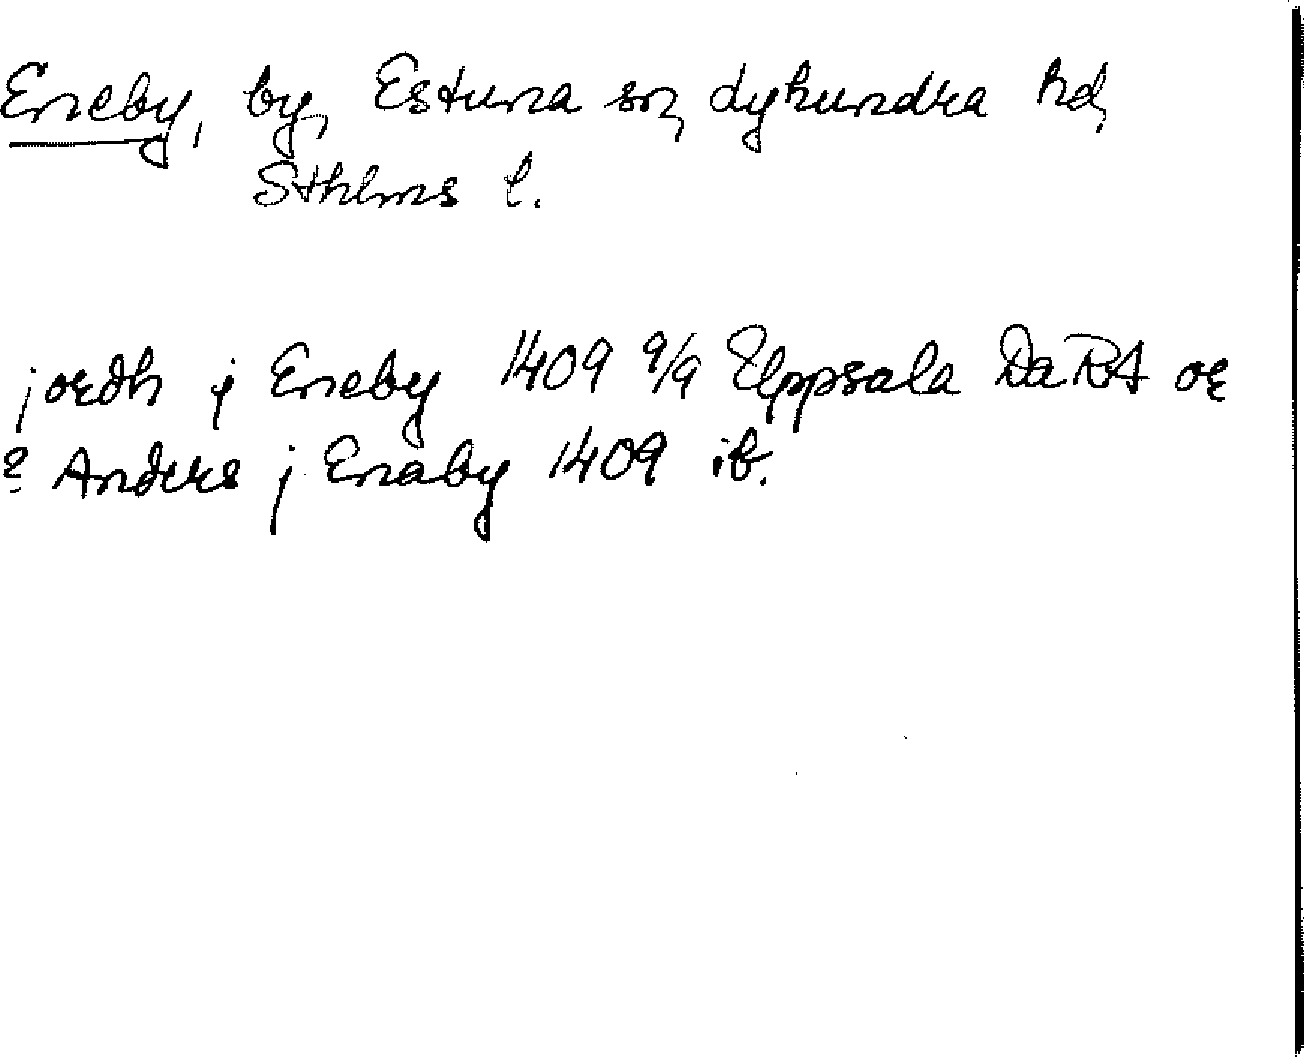 Eneby, by, Estuna sn, Lyhundra hd,
Sthlms l.
jordh j Eneby 1409 9/9 Uppsala Da RA or
? Anders j Enaby 1409 ib.